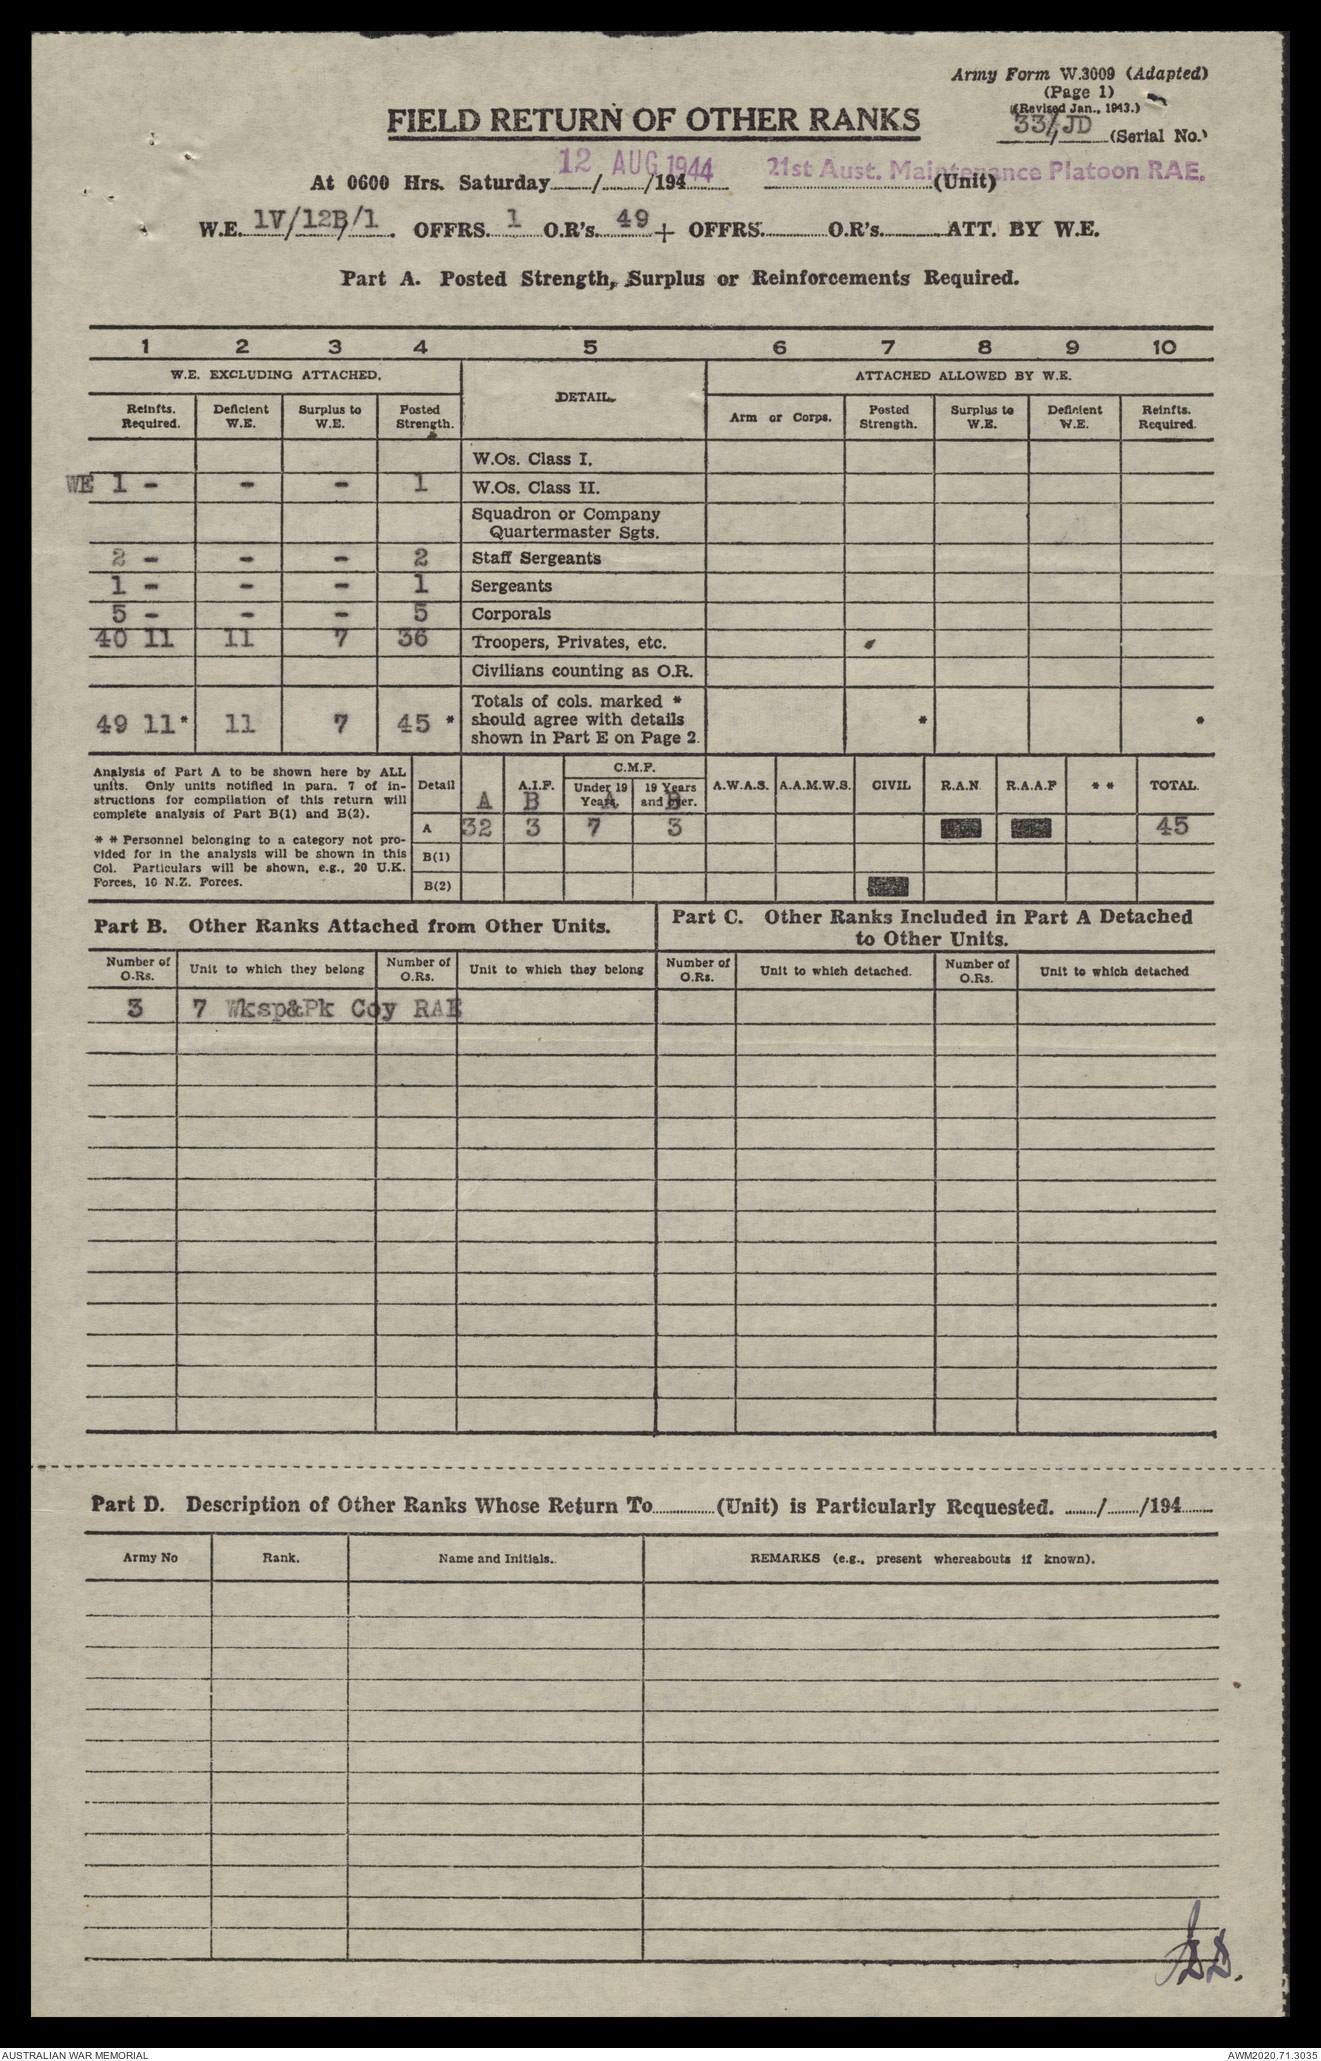 Army Form W.3009 (Adapted)
(Page 1)
(Revised Jan., 1943.)
FIELD RETURN OF OTHER RANKS
33/JD (Serial No.)
12 AUG 1944 21st Aust. Maintenance Platoon RAE.
At 0600 Hrs. Saturday....../....../194...... ............(Unit)
W.E. 1V/12B/1 . OFFRS. 1 O.R's. 49 + OFFRS.............O.R's............ATT. BY W.E.
Part A. Posted Strength, Surplus or Reinforcements Required.
1 2 3 4 5 6 7 8 9 10
W.E. EXCLUDING ATTACHED. DETAIL. ATTACHED ALLOWED BY W.E.
Reinfts. Required. Deficient W.E. Surplus to W.E. Posted Strength. Arm or Corps. Posted Strength. Surplus to W.E. Deficient W.E. Reinfts. Required.
W.Os. Class I.
WE 1 - - - 1 W.Os. Class II.
Squadron or Company
Quartermaster Sgts.
2 - - - 2 Staff Sergeants
1 - - - 1 Sergeants
5 - - - 5 Corporals
40 11 11 7 36 Troopers, Privates, etc.
Civilians counting as O.R.
Totals of cols. marked *
49 11* 11 7 45 * should agree with details * *
shown in Part E on Page 2.
Analysis of Part A to be shown here by ALL
units. Only units notified in para. 7 of in-
structions for compilation of this return will
complete analysis of Part B(1) and B(2).
* * Personnel belonging to a category not pro-
vided for in the analysis will be shown in this
Col. Particulars will be shown, e.g., 20 U.K.
Forces, 10 N.Z. Forces.
C.M.F.
Detail A.I.F. Under 19 Years. 19 Years and over. A.W.A.S. A.A.M.W.S. CIVIL R.A.N. R.A.A.F * * TOTAL.
A B A B
A 32 3 7 3 45
B(1)
B(2)
Part B. Other Ranks Attached from Other Units.
Part C. Other Ranks Included in Part A Detached
to Other Units.
Number of O.Rs. Unit to which they belong Number of O.Rs. Unit to which they belong Number of O.Rs. Unit to which detached. Number of O.Rs. Unit to which detached
3 7 Wksp&Pk Coy RAE
Part D. Description of Other Ranks Whose Return To............(Unit) is Particularly Requested. ....../....../194......
Army No Rank. Name and Initials. REMARKS (e.g., present whereabouts if known).
AUSTRALIAN WAR MEMORIAL AWM2020.71.3035